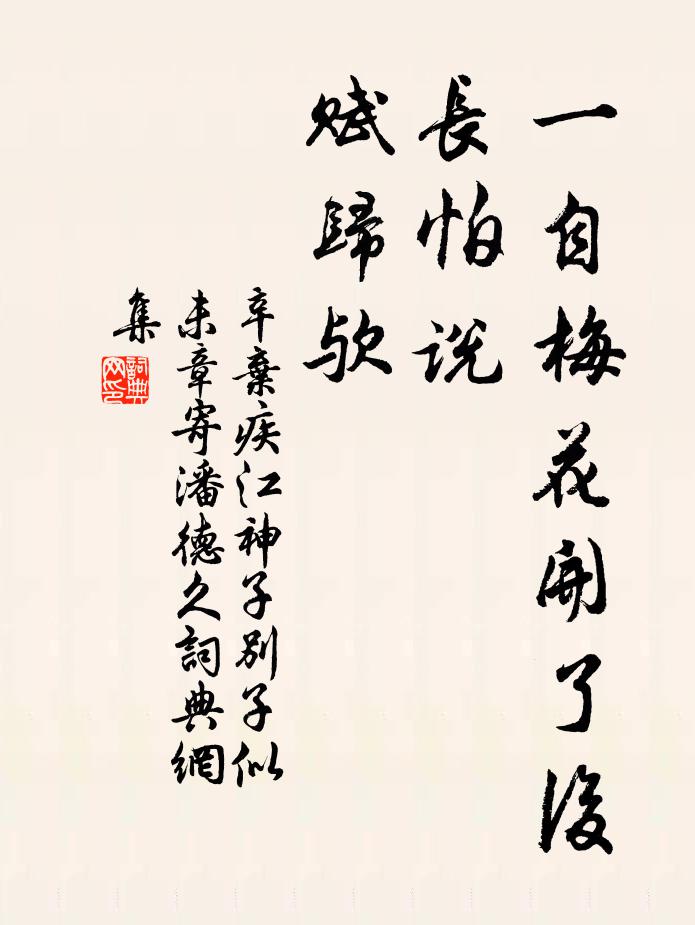 一自梅花開了後
長怕說
賦歸欤
辛棄疾江神子別子似
末章寄潘德久詞典網
集
詞典
网印